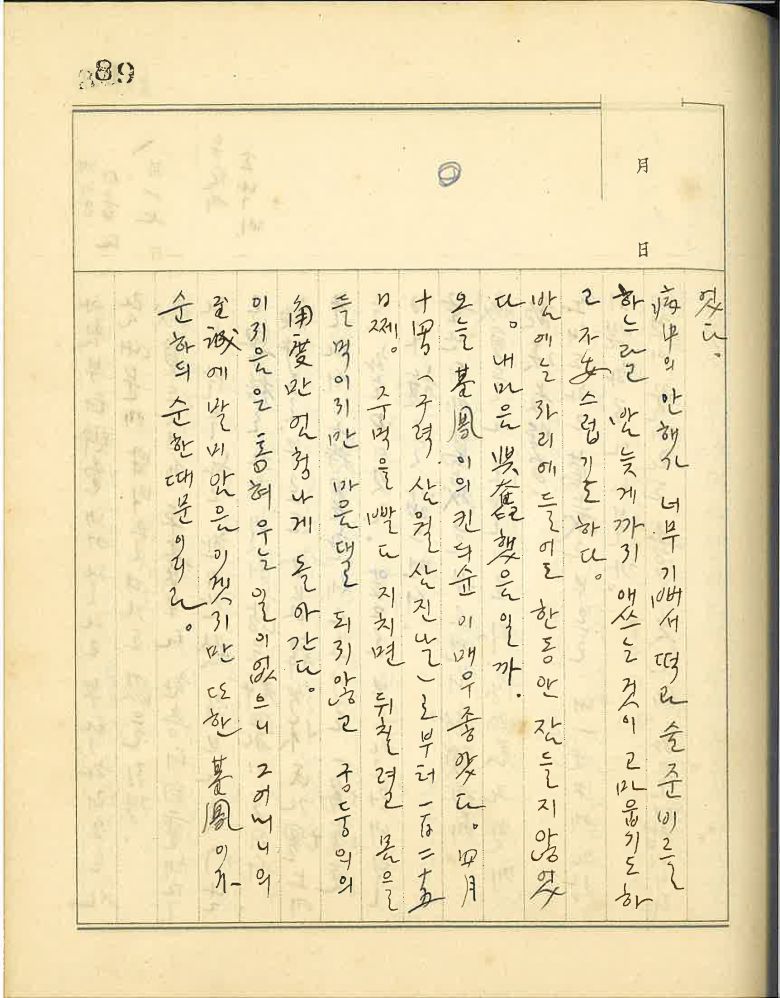 89
月
日
었다.
病中의 안해가 너무 기뻐서 떡과 술 준비를
하느라고 밤 늦게까지 애쓰는 것이 고마웁기도 하
고 자安스럽기도 하다.
밤에는 자리에 들어도 한동안 잠들지 않었
다. 내 마음 興奮했음일까.
오늘 基鳳이의 킨의순이 매우 좋았다. 四月
十男 (구력. 삼월 삼진날)로부터 一百二十五
日쩨. 주먹을 빨다 지치면 뒤칠려고 몸을
들먹이지만 마음대로 되지 않고 궁둥의의
角度만 엄청나게 돌아간다.
이지음은 통혀 우는 일이 없으니 그 어머니의
至誠에 말미암음이겠지만 또한 基鳳이가
순하듸 순한 때문이리라.